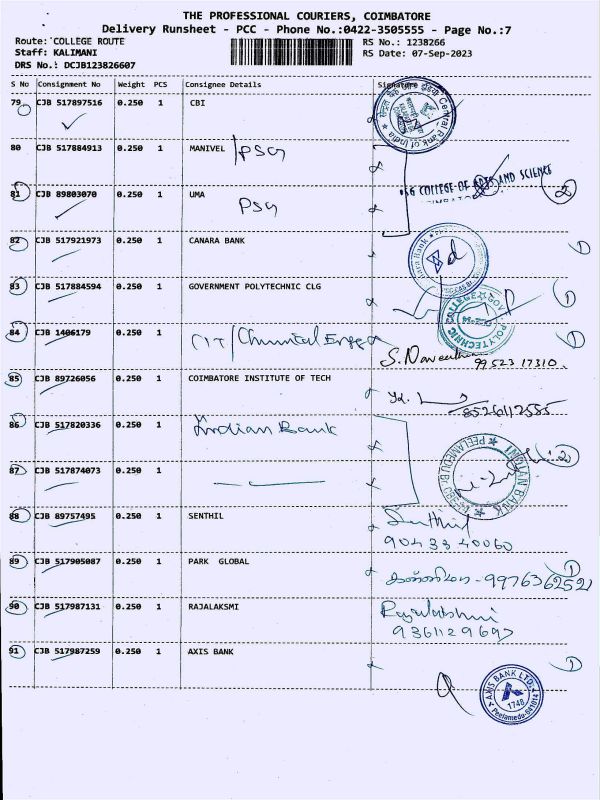 THE PROFESSIONAL COURIERS, COIMBATORE
Delivery Runsheet - PCC - Phone No.:0422-3505555 - Page No.:7
Route: COLLEGE ROUTE RS No.: 1238266
Staff: KALIMANI RS Date: 07-Sep-2023
DRS No.: DCJB123826607
S No Consignment No Weight PCS Consignee Details Signature
79 CJB 517897516 0.250 1 CBI
Central Bank of India
80 CJB 517884913 0.250 1 MANIVEL PSG
PSG COLLEGE OF ARTS AND SCIENCE
81 CJB 89803070 0.250 1 UMA PSG 2
82 CJB 517921973 0.250 1 CANARA BANK 1
83 CJB 517884594 0.250 1 GOVERNMENT POLYTECHNIC CLG 1
POLYTECHNIC COLLEGE
84 CJB 1406179 0.250 1 CIT/ 1
99523 17310.
85 CJB 89726056 0.250 1 COIMBATORE INSTITUTE OF TECH
8526112585
86 CJB 517820336 0.250 1 Indian Bank 2
INDIAN BANK
87 CJB 517874073 0.250 1
88 CJB 89757495 0.250 1 SENTHIL Senthil
90433 40060
89 CJB 517905087 0.250 1 PARK GLOBAL 1
9976362521
90 CJB 517987131 0.250 1 RAJALAKSMI Rajalakshmi
9361129697
91 CJB 517987259 0.250 1 AXIS BANK 1
AXIS BANK LTD.
1748
Peelamedu-641014